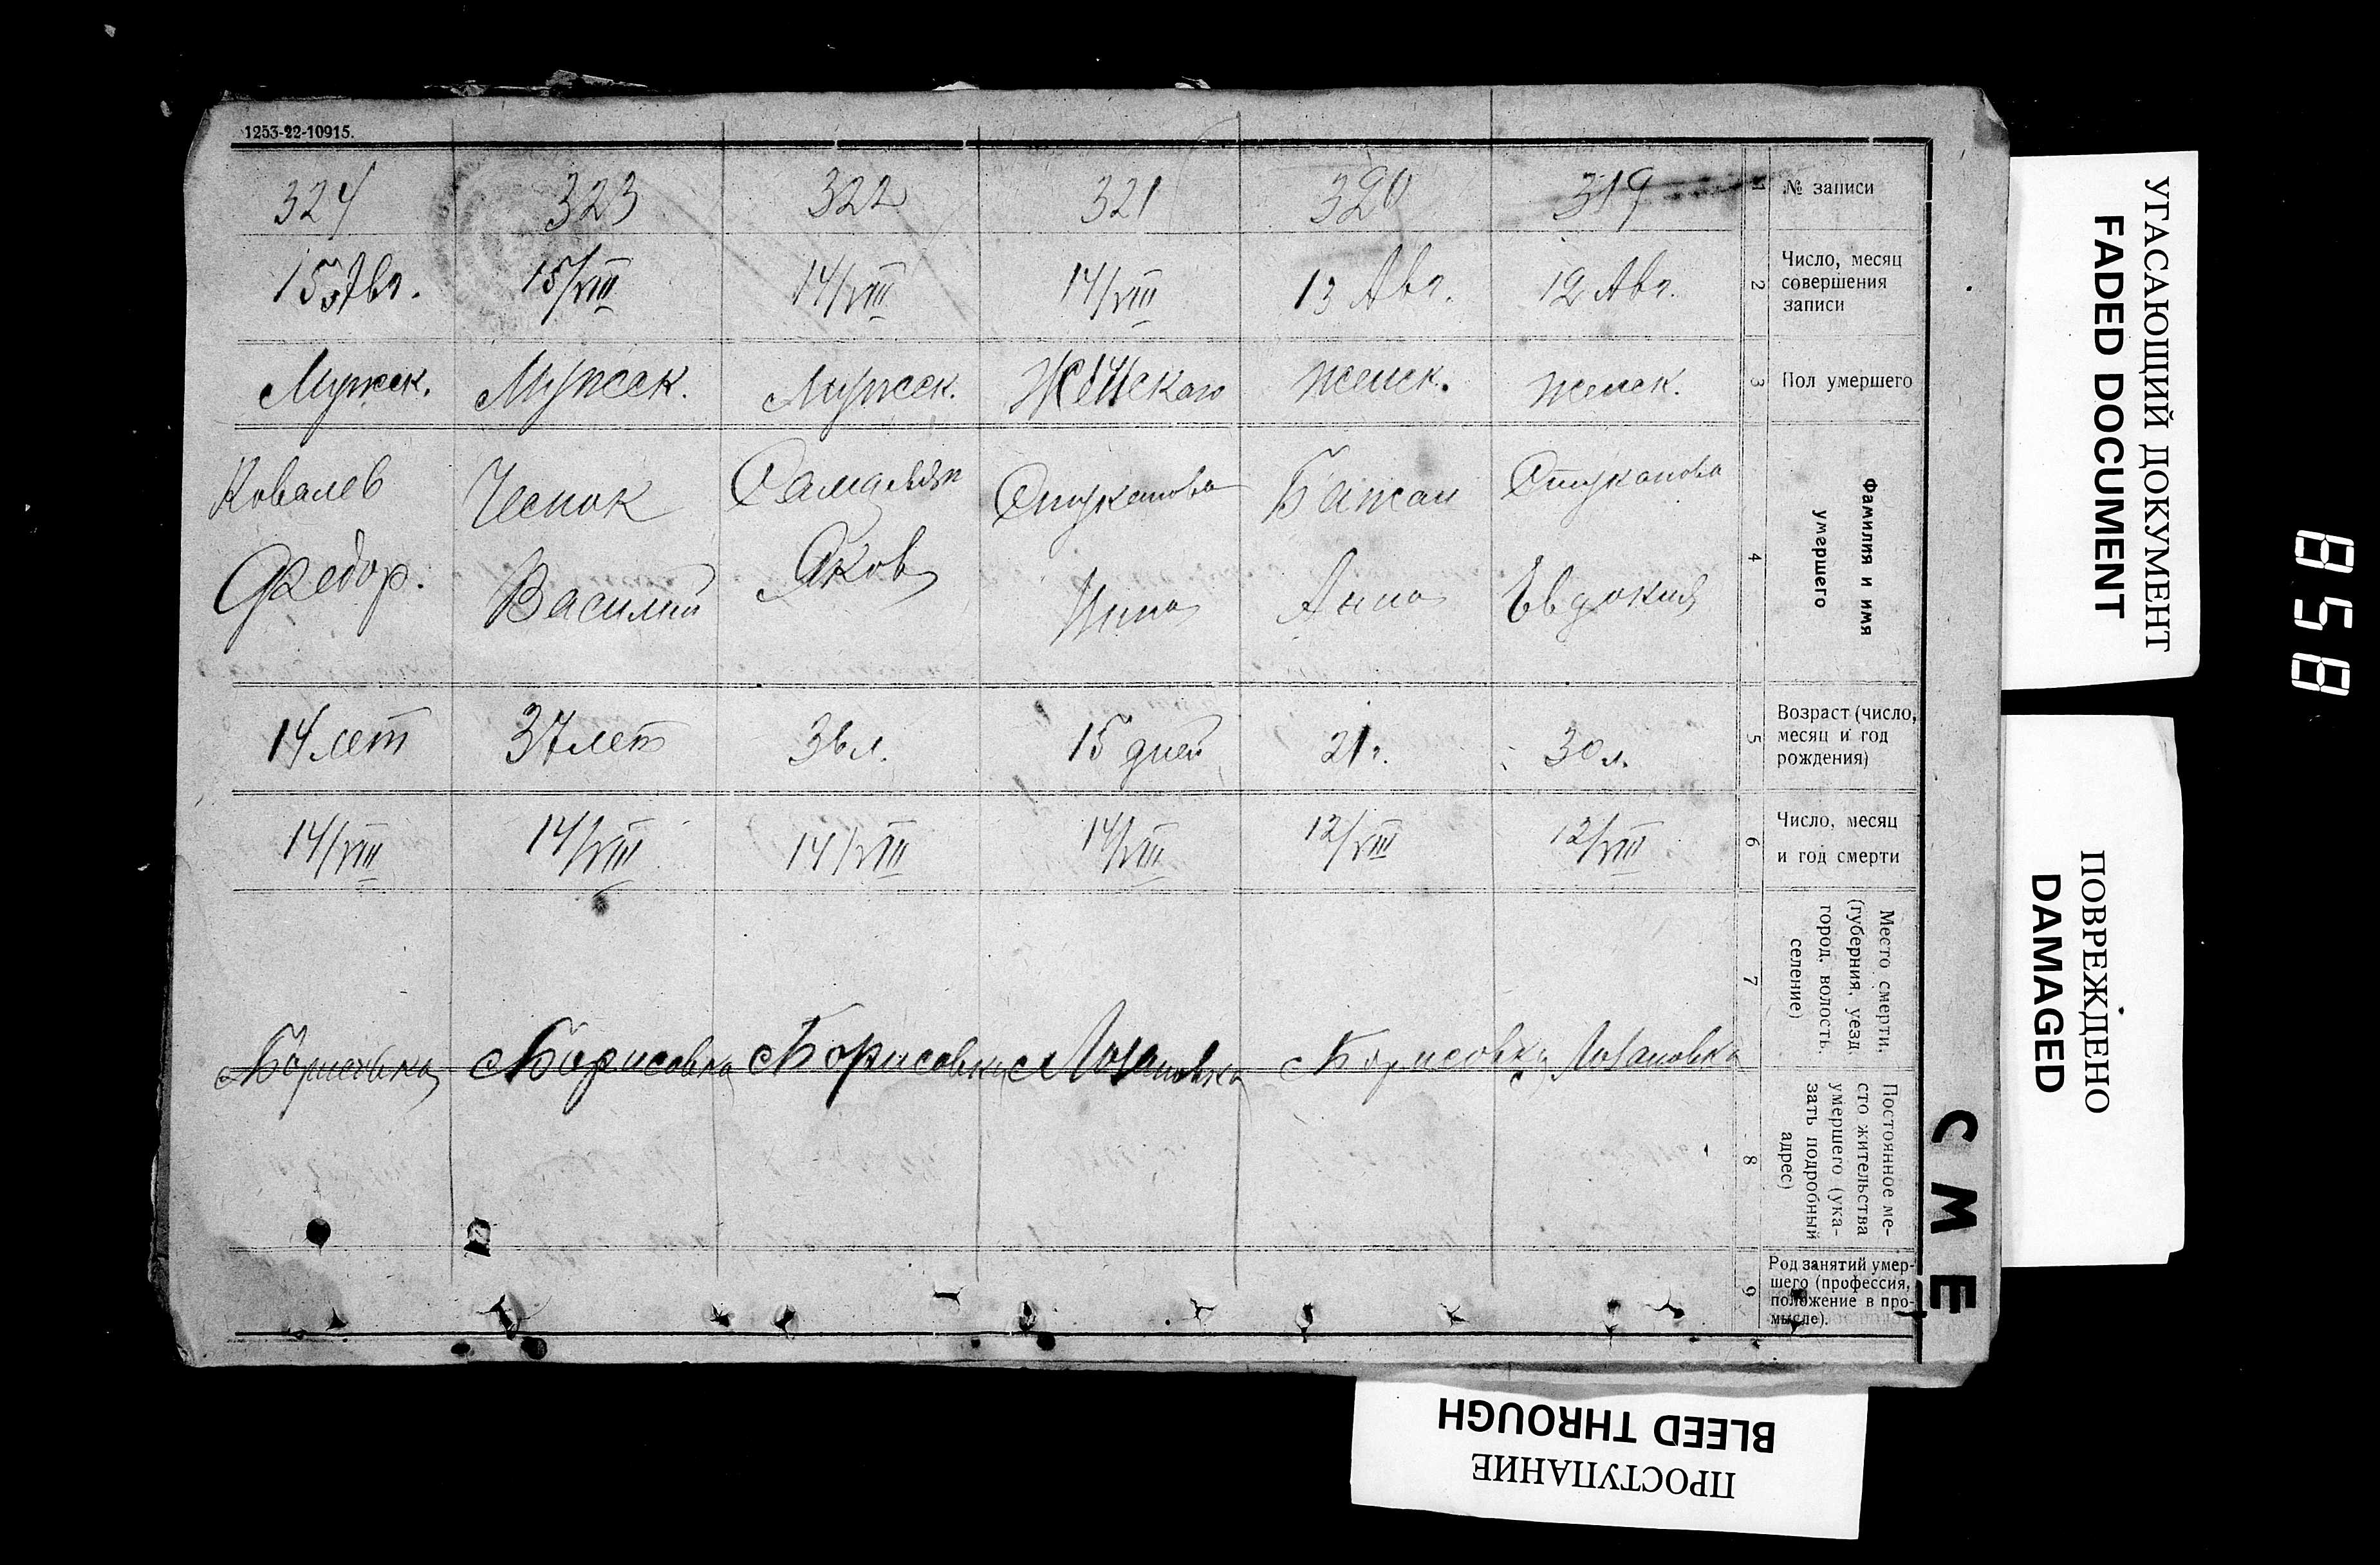 1253-22-10915.
324 323 322 321 320 319 1 № записи
15 Авг. 15/VIII 14/VIII 14/VIII 13 Авг. 12 Авг. 2 Число, месяц
совершения
записи
Мужск. Мужск. Мужск. Женского женск. женск. 3 Пол умершего
Ковалев Чеснок Стуканова Бажан Стуканова 4 Фамилия и имя
умершего
Федор. Василий Яков Анна Евдокия
14 лет 37 лет 36 л. 15 дней 21 г. 30 л. 5 Возраст (число,
месяц и год
рождения)
14/VIII 14/VIII 14/VIII 14/VIII 12/VIII 12/VIII 6 Число, месяц
и год смерти
7 Место смерти,
(губерния, уезд
город, волость,
селение)
с Борисовка с Борисовка с Борисовка с Лозановка с Борисовка с Лозановка
8 Постоянное ме-
сто жительства
умершего (ука-
зать подробный
адрес)
9 Род занятий умер-
шего (профессия,
положение в про-
мысле).
СМЕ
УГАСАЮЩИЙ ДОКУМЕНТ
FADED DOCUMENT
ПОВРЕЖДЕНО
DAMAGED
858
BLEED THROUGH
ПРОСТУПАНИЕ